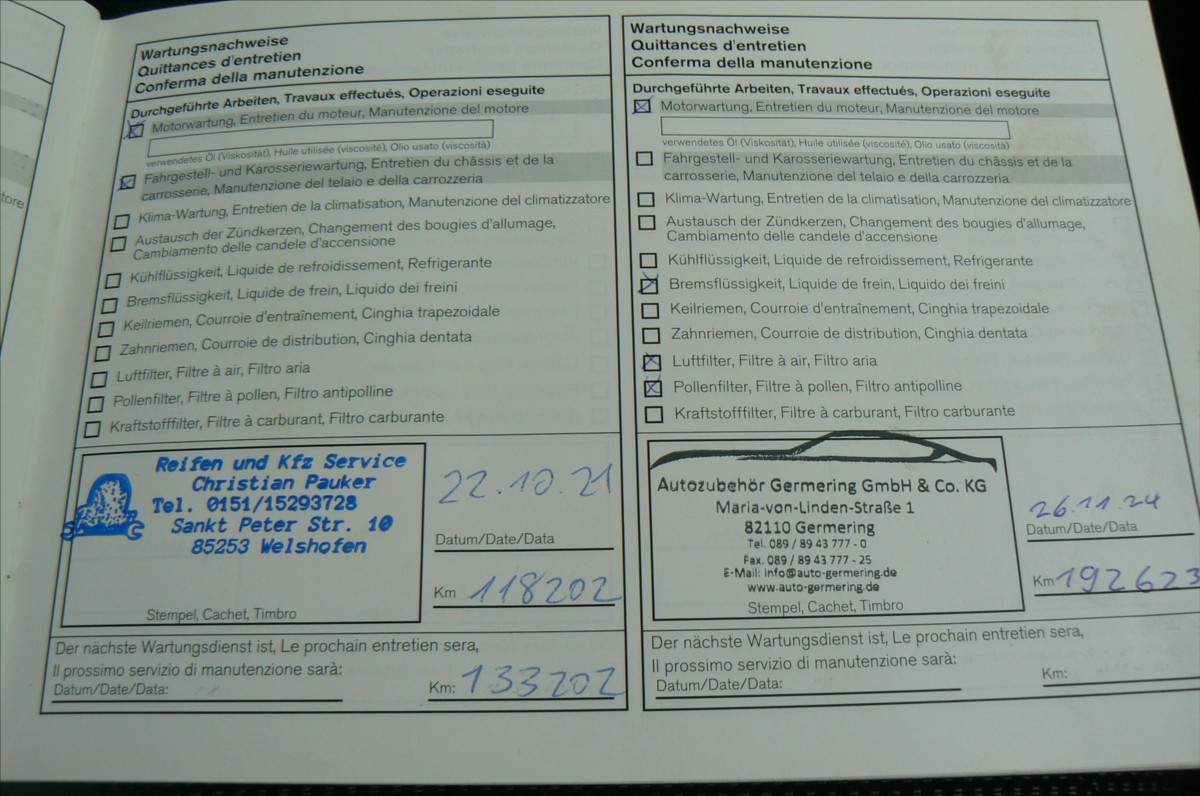 Wartungsnachweise
Quittances d'entretien
Conferma della manutenzione
Durchgeführte Arbeiten, Travaux effectués, Operazioni eseguite
Motorwartung, Entretien du moteur, Manutenzione del motore
verwendetes Öl (Viskosität), Huile utilisée (viscosité), Olio usato (viscosità)
Fahrgestell- und Karosseriewartung, Entretien du châssis et de la
carrosserie, Manutenzione del telaio e della carrozzeria
Klima-Wartung, Entretien de la climatisation, Manutenzione del climatizzatore
Austausch der Zündkerzen, Changement des bougies d'allumage,
Cambiamento delle candele d'accensione
Kühlflüssigkeit, Liquide de refroidissement, Refrigerante
Bremsflüssigkeit, Liquide de frein, Liquido dei freini
Keilriemen, Courroie d'entraînement, Cinghia trapezoidale
Zahnriemen, Courroie de distribution, Cinghia dentata
Luftfilter, Filtre à air, Filtro aria
Pollenfilter, Filtre à pollen, Filtro antipolline
Kraftstofffilter, Filtre à carburant, Filtro carburante
Reifen und Kfz Service
Christian Pauker
Tel. 0151/15293728
Sankt Peter Str. 10
85253 Welshofen
Stempel, Cachet, Timbro
22.10.21
Datum/Date/Data
Km 118202
Der nächste Wartungsdienst ist, Le prochain entretien sera,
Il prossimo servizio di manutenzione sarà:
Datum/Date/Data:
Km: 133202
Wartungsnachweise
Quittances d'entretien
Conferma della manutenzione
Durchgeführte Arbeiten, Travaux effectués, Operazioni eseguite
Motorwartung, Entretien du moteur, Manutenzione del motore
verwendetes Öl (Viskosität), Huile utilisée (viscosité), Olio usato (viscosità)
Fahrgestell- und Karosseriewartung, Entretien du châssis et de la
carrosserie, Manutenzione del telaio e della carrozzeria
Klima-Wartung, Entretien de la climatisation, Manutenzione del climatizzatore
Austausch der Zündkerzen, Changement des bougies d'allumage,
Cambiamento delle candele d'accensione
Kühlflüssigkeit, Liquide de refroidissement, Refrigerante
Bremsflüssigkeit, Liquide de frein, Liquido dei freini
Keilriemen, Courroie d'entraînement, Cinghia trapezoidale
Zahnriemen, Courroie de distribution, Cinghia dentata
Luftfilter, Filtre à air, Filtro aria
Pollenfilter, Filtre à pollen, Filtro antipolline
Kraftstofffilter, Filtre à carburant, Filtro carburante
Autozubehör Germering GmbH & Co. KG
Maria-von-Linden-Straße 1
82110 Germering
Tel. 089 / 89 43 777 - 0
Fax. 089 / 89 43 777 - 25
E-Mail: info@auto-germering.de
www.auto-germering.de
Stempel, Cachet, Timbro
26.11.24
Datum/Date/Data
Km 192623
Der nächste Wartungsdienst ist, Le prochain entretien sera,
Il prossimo servizio di manutenzione sarà:
Datum/Date/Data:
Km:
tore